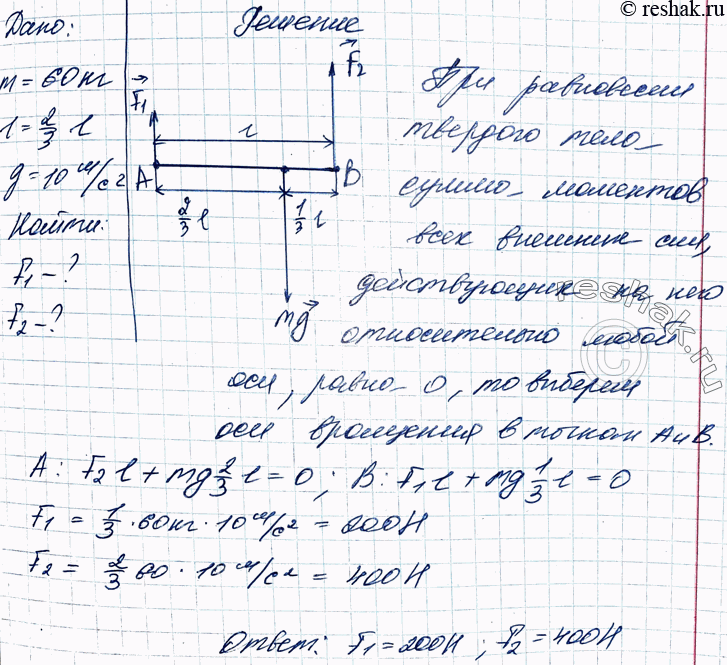 © reshak.ru
Дано:
m = 60 кг
l = 2/3 l
g = 10 м/с²
Найти:
F₁ - ?
F₂ - ?
Решение
F₁
F₂
l
A
B
2/3 l
1/3 l
mg
При равновесии
твердого тела
сумма моментов
всех внешних сил,
действующих на него
относительно любой
оси, равна 0, то выберем
оси вращения в точках A и B.
A: F₂l + mg 2/3 l = 0; B: F₁l + mg 1/3 l = 0
F₁ = 1/3 · 60 кг · 10 м/с² = 200 Н
F₂ = 2/3 60 · 10 м/с² = 400 Н
Ответ: F₁ = 200 Н; F₂ = 400 Н
reshak.ru
©